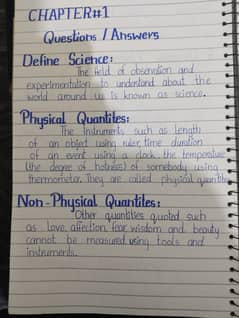 CHAPTER#1
Questions / Answers
Define Science:
The field of observation and
experimentation to understand about the
world around us is known as science.
Physical Quantites:
The Instruments such as length
of an object using ruler, time duration
of an event using a clock, the temperature
(the degree of hotness) of somebody using
thermometer. They are called physical quantites
Non-Physical Quantites:
Other quantities quoted such
as love, affection, fear, wisdom and beauty
cannot be measured using tools and
instruments.